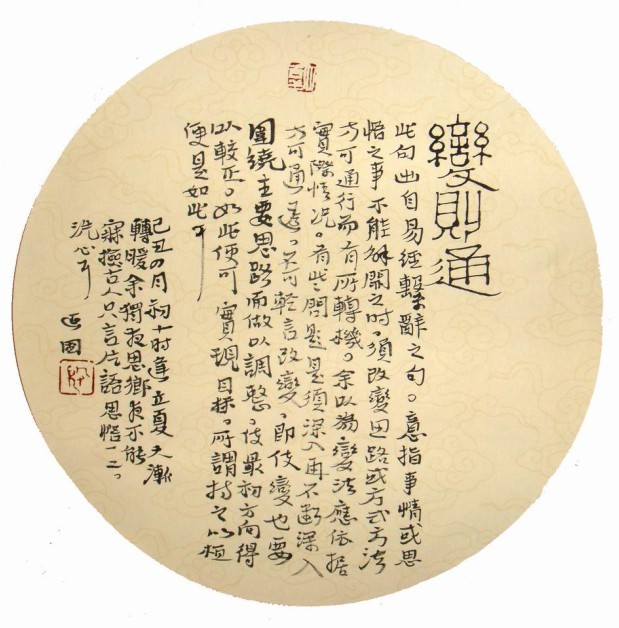 變則通
此句出自易經繫辭之句。意指事情或思
悟之事不能解開之时，須改變思路或方式方法
方可通行而有所轉機。余以為變法應依据
實際情况。有些问題是須深入再不断深入
方可通達。不可輕言改變，即使變也要
圍繞主要思路而做以調整，使最初方向得
以較正。如此便可實現目标。所謂持之以恒
便是如此耳
己丑四月初十时逢立夏天漸
轉暖余獨夜思鄉夜不能
寐撿古人只言片語思悟一二。
洗心耳